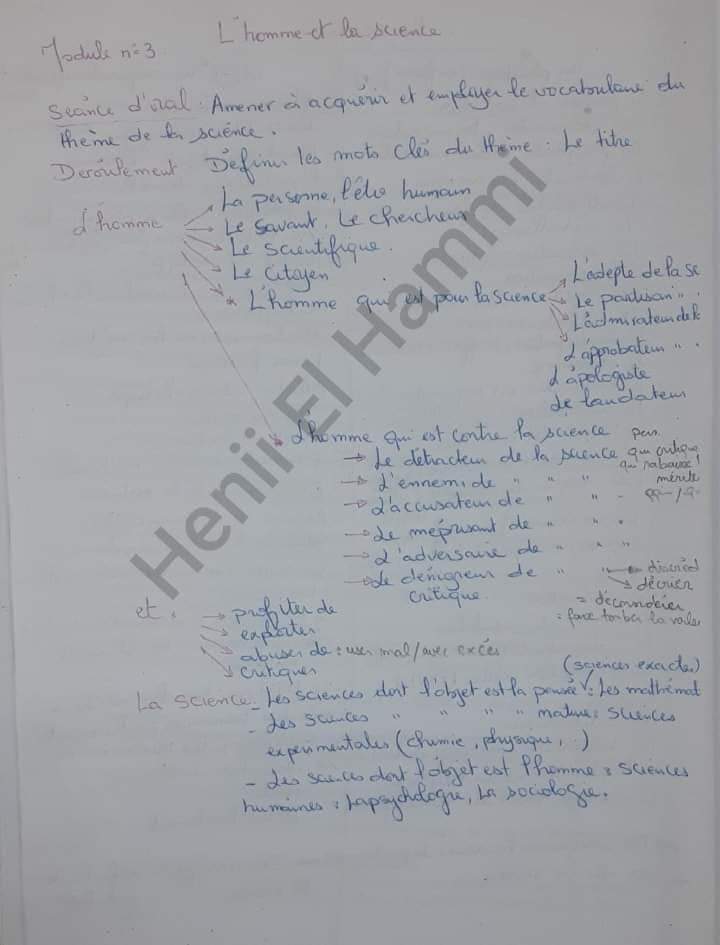 L'homme et la science
Module n=3
Séance d'oral : Amener à acquérir et employer le vocabulaire du
thème de la science.
Déroulement Définir les mots clés du thème. Le titre
L'homme
La personne, l'être humain
Le savant, Le chercheur
Le scientifique.
Le citoyen
L'homme qui est pour la science
L'adepte de la sc
Le partisan " .
L'admirateur de l
L'approbateur " .
L'apologiste
Le laudateur
L'homme qui est contre la science
Le détracteur de la science qui critique
qui rabaisse l
mérite
L'ennemi de " "
L'accusateur de " " "
Le méprisant de " " "
L'adversaire de " " "
Le dénigreur de " " discréd
critique
décrier
= déconsidérer
= faire tomber la vale
et .
profiter de
exploiter
abuser de : user mal/avec excès
critiquer
(sciences exactes)
La science - Les sciences dont l'objet est la pensée : Les mathémat
- Les sciences " " " " matière : Sciences
expérimentales (chimie, physique, . )
- Les sciences dont l'objet est l'homme : sciences
humaines : La psychologie, La sociologie.
Henii El Hammi